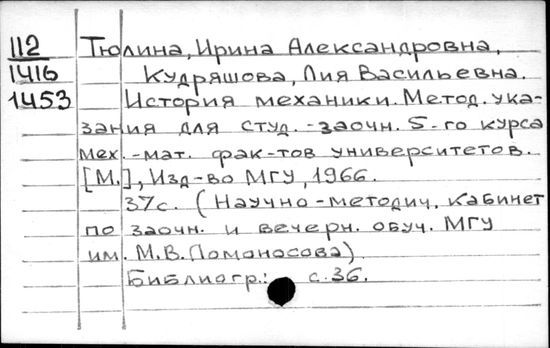 112 Тюлина, Ирина Александровна,
1416 Кудряшова, Лия Васильевна.
1453 История механики. Метод. ука-
зания для студ. -заочн. 5-го курса
мех.-мат. фак-тов университетов.
[М.], Изд-во МГУ, 1966.
37с. (Научно-методич. кабинет
по заочн. и вечерн. обуч. МГУ
им. М.В. Ломоносова)
Библиогр.: с. 36.